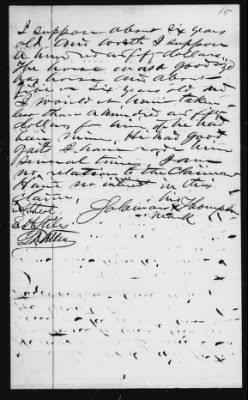 15
I suppose about six years
old and worth I suppose
a hundred and fifty dollars
The horse was a good sized
bay horse and about
five or six years old and
I would not have taken
less than a hundred and fifty
dollars for him if he had
been mine. He had good
gait I have rode him
several times. I am
no relation to the Claimant
Have no interest in this
Claim. his
Attest Coleman X Thompson
mark